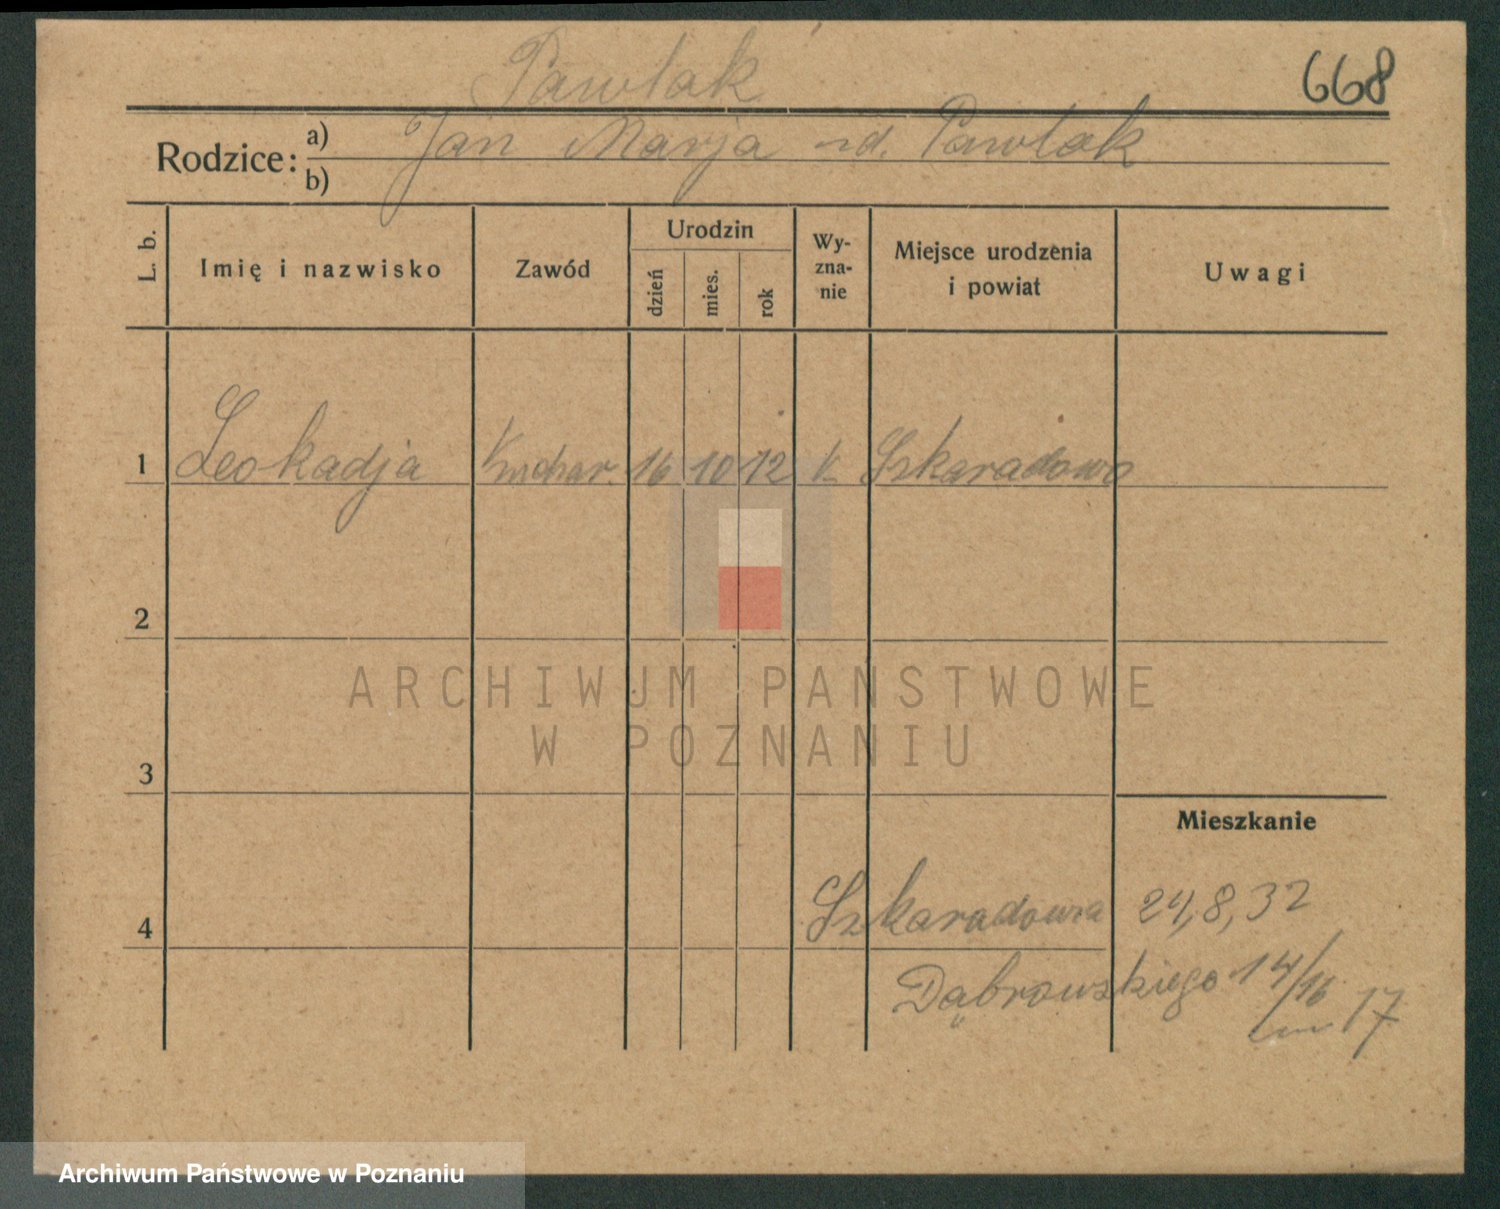 Pawlak
668
Rodzice: a) Jan Marja rd. Pawlak
b)
L. b.
Imię i nazwisko
Zawód
Urodzin
dzień
mies.
rok
Wy-
zna-
nie
Miejsce urodzenia
i powiat
Uwagi
1 Leokadja Kuchar. 16 10 12 K Szkaradowo
2
ARCHIWUM PAŃSTWOWE
W POZNANIU
3
Mieszkanie
4 Szkaradowa 24,8,32
Dąbrowskiego 14/16
17
Archiwum Państwowe w Poznaniu